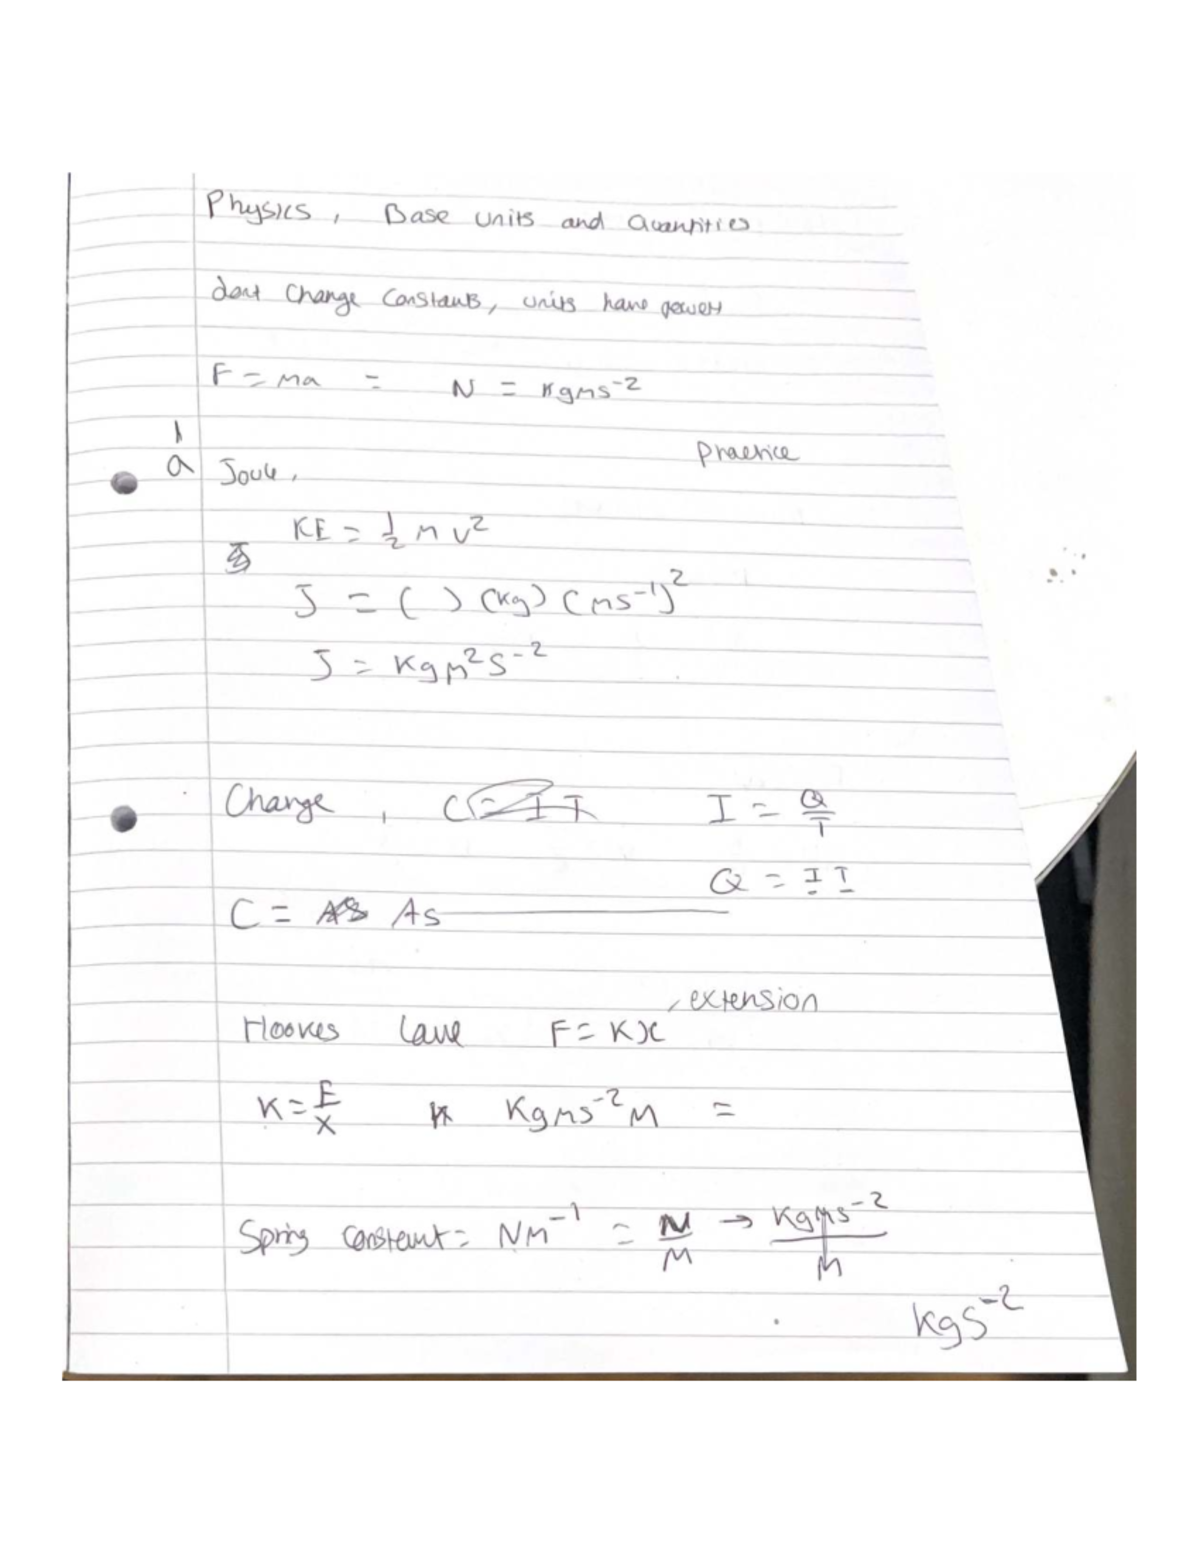 Physics, Base units and Quantities
dont Change Constants, units have powers
F = ma = N = kgms⁻²
1
Practice
a Joule,
KE = ½ m v²
J = ( ) (kg) (ms⁻¹)²
J = kgm²s⁻²
Change, C = IT I = Q/T
Q = I T
C = As As
extension
Hookes Law F = Kx
K = F/x K kgms⁻²m =
Spring constant = Nm⁻¹ = N/m → kgms⁻²/m
kgs⁻²